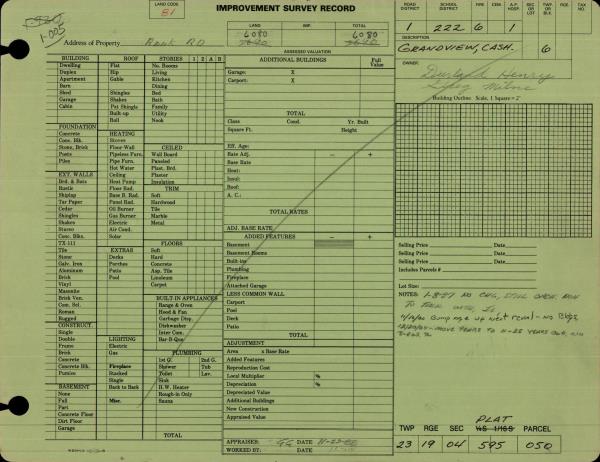 LAND CODE
81
IMPROVEMENT SURVEY RECORD
ROAD DISTRICT SCHOOL DISTRICT FIRE CEM. A.P. HOSP. TWP. OR BLK. SEC OR LOT RGE. TAX NO.
1 222 6 1
1-005
LAND IMP. TOTAL
6080 6080
Address of Property Bank RD
ASSESSED VALUATION
DESCRIPTION
GRANDVIEW, CASH. 6
OWNER
Henry
Building Outline Scale, 1 Square = 2'
BUILDING ROOF STORIES 1 2 A B
Dwelling Flat No. Rooms
Duplex Hip Living
Apartment Gable Kitchen
Barn Dining
Shed Shingles Bed
Garage Shakes Bath
Cabin Pat Shingle Family
Built-up Utility
Roll Nook
FOUNDATION HEATING
Concrete Stoves CEILED
Conc. Blk. Floor-Wall Wall Board
Stone, Brick Pipeless Furn. Paneled
Posts Pipe Furn. Plast. Brd.
Piles Hot Water Ceiling
EXT. WALLS Heat Pump Plaster
Insulation
Brd. & Bats
Rustic Floor Rad. TRIM
Shiplap Base B. Rad. Soft
Tar Paper Panel Rad. Hardwood
Cedar Oil Burner Tile
Shingles Gas Burner Marble
Shakes Electric Metal
Stucco Air Cond.
Conc. Blks. Solar
TX-111 FLOORS
Tile EXTRAS Soft
Stone Decks Hard
Galv. Iron Porches Concrete
Aluminum Patio Asp. Tile
Brick Pool Linoleum
Vinyl Carpet
Masonite
Brick Ven. BUILT-IN APPLIANCES
Com. Sel. Range & Oven
Roman Hood & Fan
Rugged Garbage Disp.
CONSTRUCT. Dishwasher
Single Inter Com.
Double LIGHTING Bar-B-Que
Frame Electric
Brick Gas PLUMBING
Concrete 1st G. 2nd G.
Conc. Blk. Fireplace Shower Tub
Pumice Stacked Toilet Lav.
Single Sink
BASEMENT Back to Back H.W. Heater
None Rough-in Only
Full Misc. Sauna
Part
Concrete Floor
Dirt Floor
Garage TOTAL
ADDITIONAL BUILDINGS Full Value
Garage: X
Carport: X
TOTAL
Class Cond. Yr. Built
Square Ft. Height
Eff. Age:
Rate Adj. − +
Base Rate
Heat:
Insul:
Roof:
A. C.:
TOTAL RATES
ADJ. BASE RATE
ADDED FEATURES − +
Basement
Basement Rooms
Built-ins
Plumbing
Fireplace
Attached Garage
LESS COMMON WALL
Carport
Pool
Deck
Patio
TOTAL
ADJUSTMENT
Area x Base Rate
Added Features
Reproduction Cost
Local Multiplier %
Depreciation %
Depreciated Value
Additional Buildings
New Construction
Appraised Value
APPRAISER: GG DATE 11-23-80
WORKED BY: DATE
Selling Price Date
Selling Price Date
Selling Price Date
Includes Parcels #
Lot Size:
NOTES: 1-8-87 NO CHG, STILL
PLAT
TWP RGE SEC ¼S 1/16S PARCEL
23 19 04 595 050